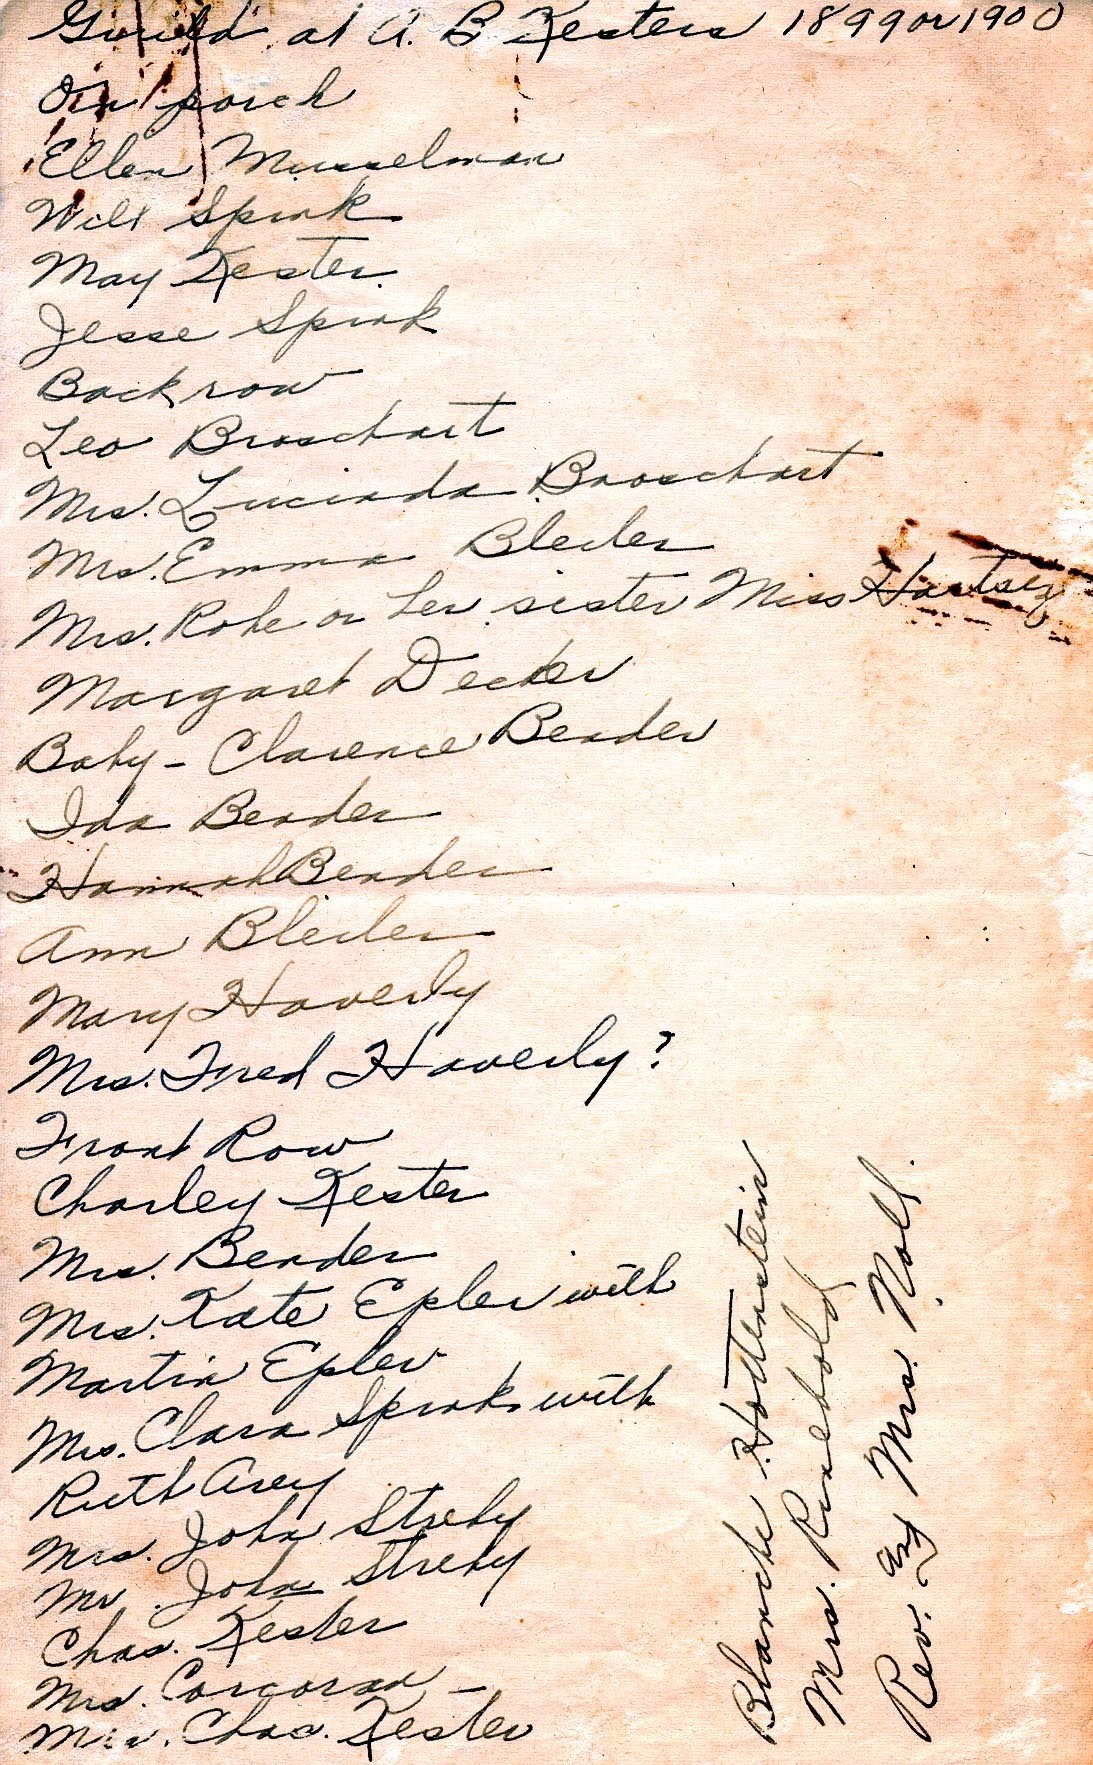 Guild at A. B Kesters 1899 or 1900
On porch
Ellen Musselman
Will Spink
May Kester
Jesse Spink
Back row
Leo Broschart
Mrs. Lucinda Broschart
Mrs. Emma Bleiler
Mrs. Rohe or her sister Miss Hartsey
Margaret Decker
Baby - Clarence Bender
Ida Bender
Hannah Bender
Ann Bleiler
Mary Haverly
Mrs. Fred Haverly?
Front Row
Charley Kester
Mrs. Bender
Mrs. Kate Epler with
Martin Epler
Mrs. Clara Spink with
Ruth Arey
Mrs. John Strehy
Mr. John Strehy
Chas. Kester
Mrs. Corcoran -
Mrs. Chas. Kester
Blanche Hottenstein
Mrs. Rinebold
Rev. and Mrs. Noll.